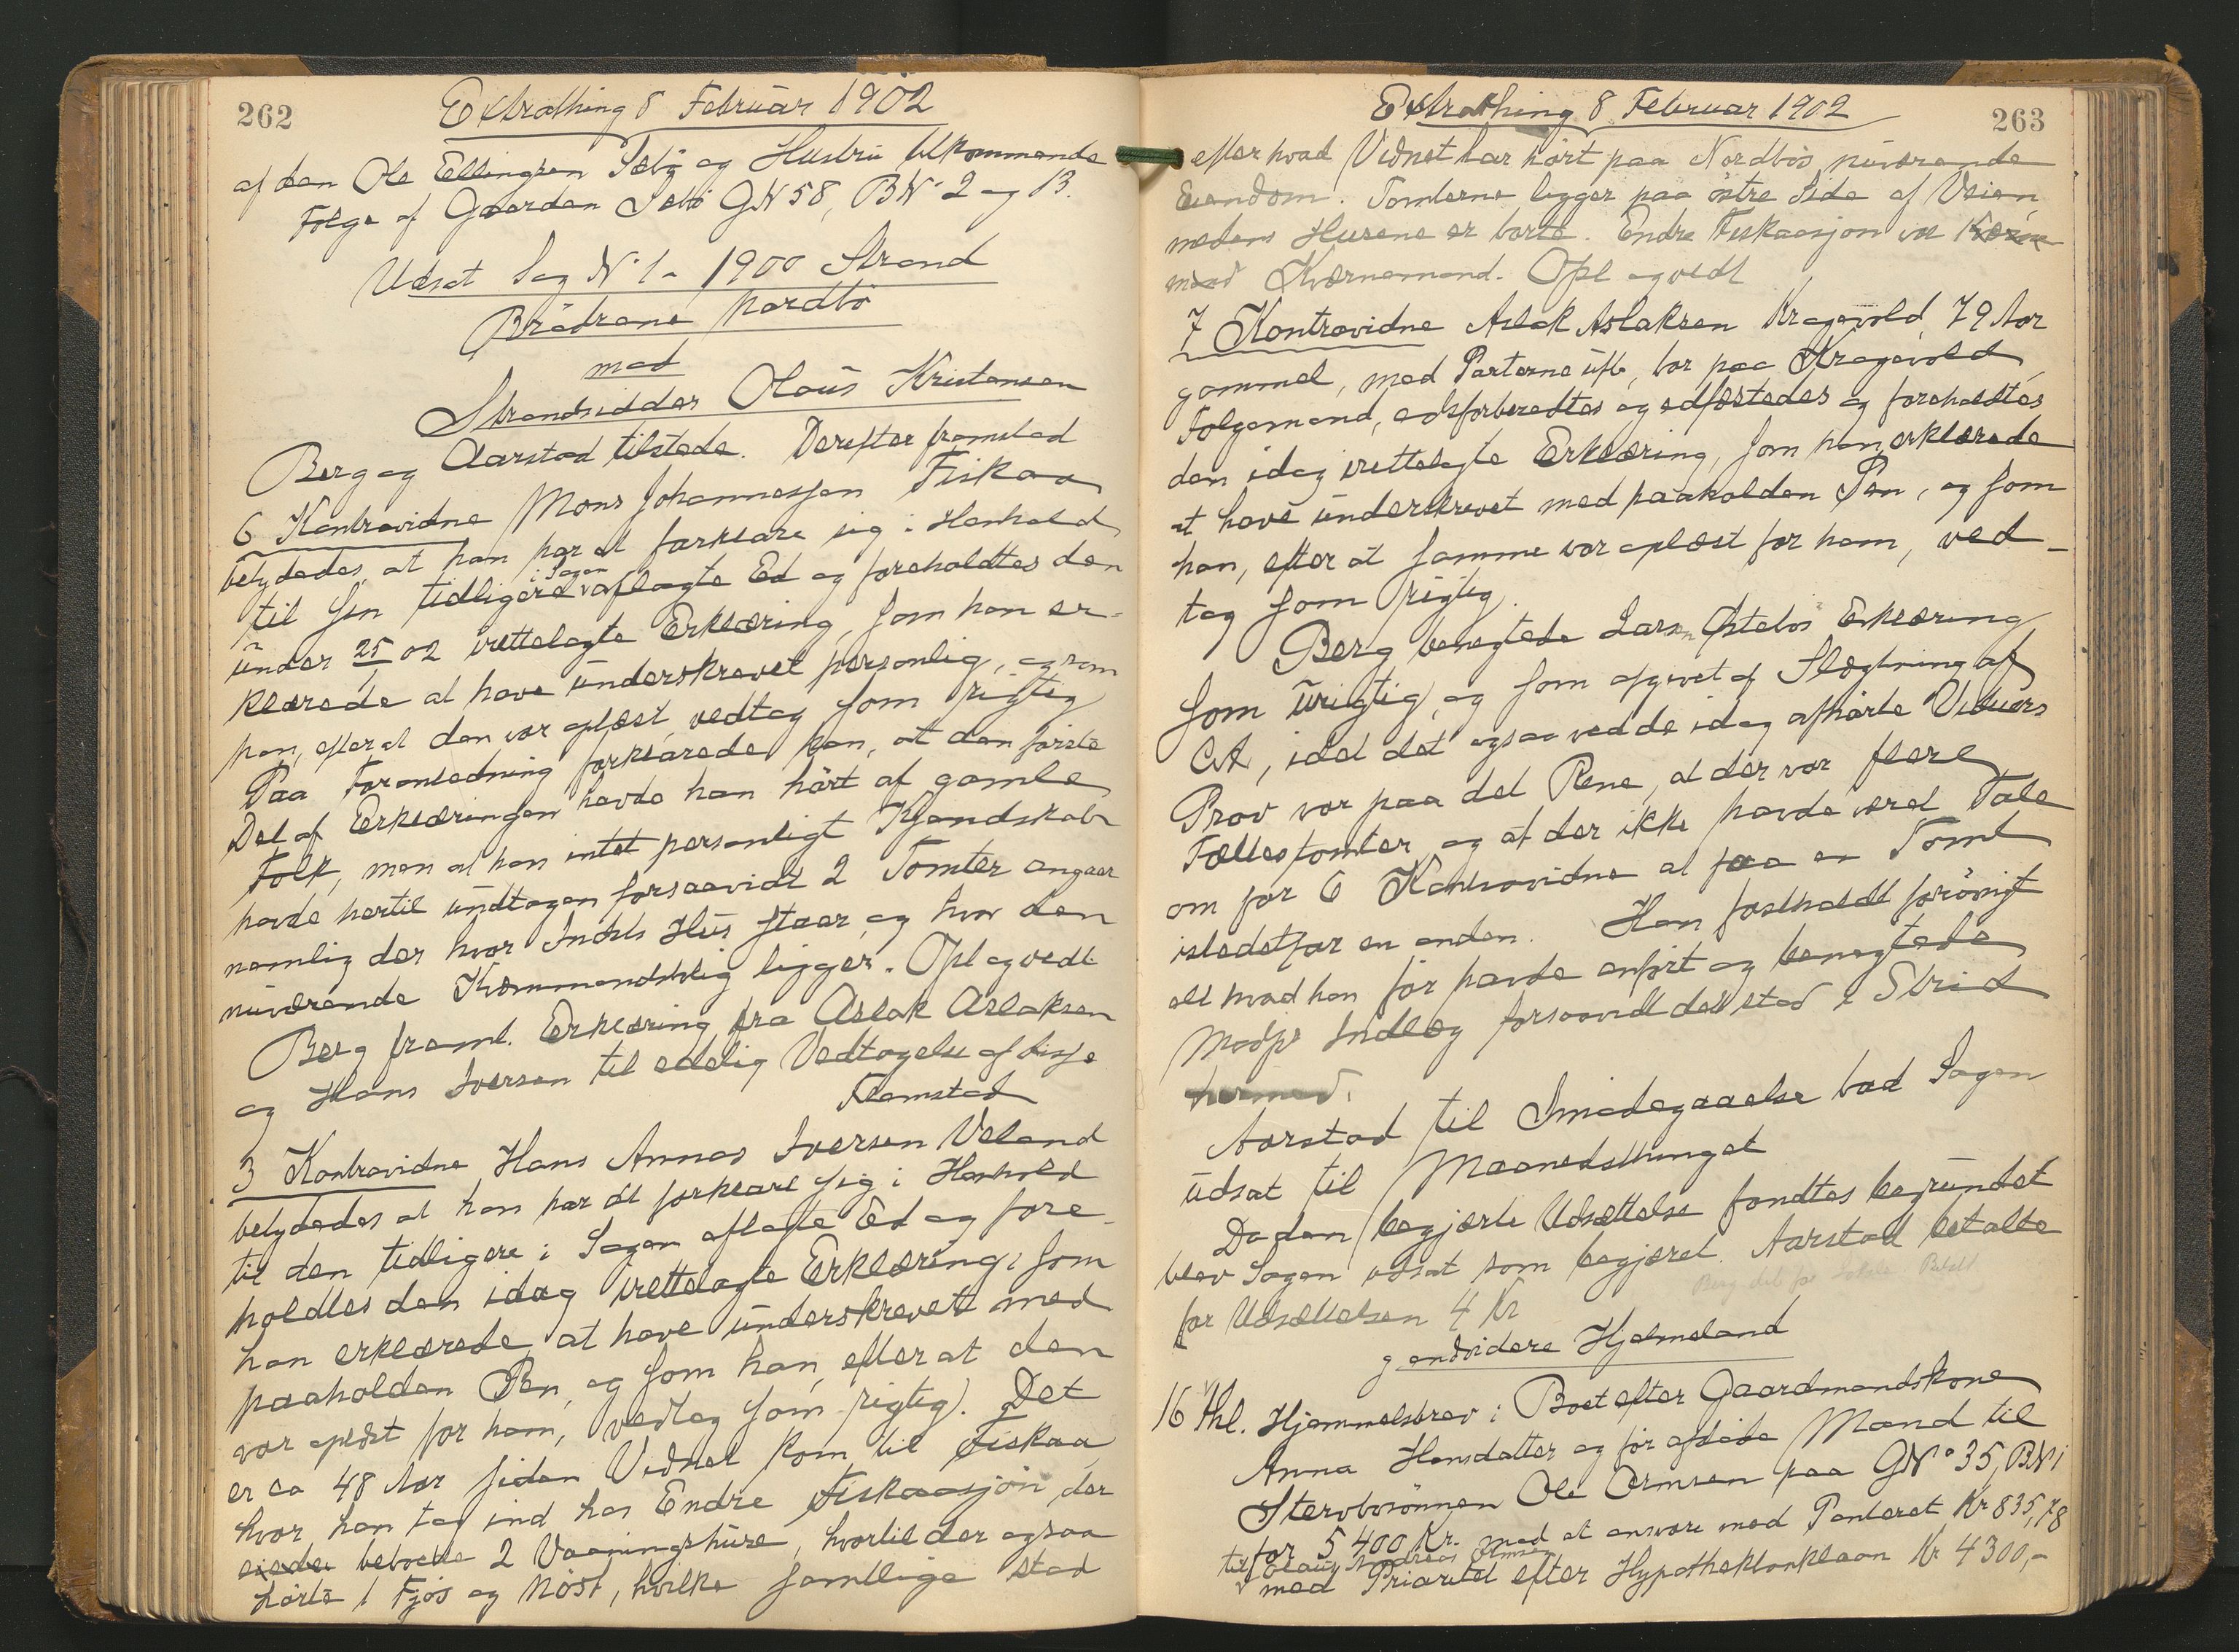 262
Extrathing 8 Februar 1902
af den Ole Ellingsen Sebø og Hustru tilkommende
Følge af Gaarden Sebø GN 58, BN 2 og 13.
Udsat Sag N 1 a 1900 Strand
Brødrene Nordbø
mod
Strandsidder Olaus Kristensen
Berg og Aarstad tilstede. Derefter fremstod
6 Kontravidne Mons Johannessen Fiskaa
betydedes, at han har at forklare sig i Henhold
til sin tidligere i Sagen aflagte Ed og foreholdtes den
under 25/1 02 irettelagte Erklæring, som han er-
klærede at have underskrevet personlig, og som
han, efter at den var oplæst, vedtog som rigtig
Paa Foranledning forklarede han, at den første
Del af Erklæringen havde han hørt af gamle
Folk, men at han intet personligt Kjendskab
havde hertil undtagen forsaavidt 2 Tomter angaar
nemlig der hvor Indels Hus staar, og hvor den
nuværende Kvernmandsbolig ligger. Opl og vedt
Berg freml. Erklæring fra Aslak Aslaksen
og Hans Iversen til edelig Vedtagelse af disse
Fremstod
3 Kontravidne Hans Annas Iversen Veland
betydedes at han har at forklare sig i Henhold
til den tidligere i Sagen aflagte Ed og fore-
holdtes den idag irettelagte Erklæring, som
han erklærede at have underskrevet med
paaholden Pen, og som han, efter at den
var oplæst for ham, vedtog som rigtig. Det
er ca 48 Aar siden Vidnet kom til Fiskaa,
hvor han tog ind hos Endre Fiskaasjøn, der
eiede beboede 2 Vaaningshuse, hvortil der ogsaa
hørte 1 Fjøs og Nøst, hvilke samtlige stod
263
Extrathing 8 Februar 1902
efter hvad Vidnet har hørt paa Nordbøs nuværende
Eiendom. Tomterne ligger paa østre Side af Veien
medens Husene er borte. Endre Fiskaasjøn var
Kværnemand. Opl og vedt
7 Kontravidne Aslak Aslaksen Kragevold 79 Aar
gammel, med Parterne ube, bor paa Kragevold,
Følgemand, edsforberedtes og edfæstedes og foreholdtes
den idag irettelagte Erklæring, som han erklærede
at have underskrevet med paaholden Pen, og som
han, efter at samme var oplæst for ham, ved-
tog som rigtig.
Berg benegtede Lars Østebøs Erklæring
som urigtig, og som afgivet af Slægtning af
Ct, idet det ogsaa ved de idag afhørte Vidners
Prov var paa det Rene, at der var flere
Fællestomter og at der ikke havde været Tale
om for 6 Kontravidne at faa en Tomt
istedetfor en anden. Han fastholdt forøvrigt
alt hvad han før havde anført og benegtede
Modps Indlæg forsaavidt det stod i Strid
hermed.
Aarstad til Imødegaaelse bad Sagen
udsat til Maanedsthinget
Da den begjærte Udsættelse fandtes begrundet
blev Sagen udsat som begjæret. Aarstad betalte
for Udsættelsen 4 Kr
Endvidere Hjelmeland
16 thl. Hjemmelsbrev i Boet efter Gaardmandskone
Anna Hansdatter og før afdøde Mand til
Stervbosønnen Ole Ormsen paa GN° 35, BN 1
for 5400 Kr. mod at ansvare med Panteret Kr 835,78
til Olaus Andreas Ormsen
med Prioritet efter Hypothekbanklaan Kr 4300,-